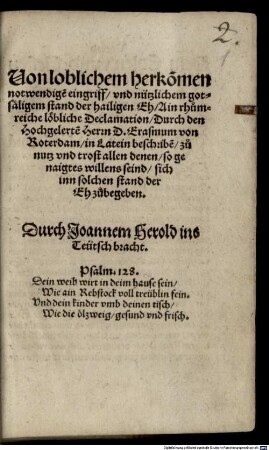 2.
Von loblichem herkõmen
notwendigẽ eingriff/ vnd nützlichem got-
säligem stand der hailigen Eh/ Ain rhům-
reiche löbliche Declamation/ Durch den
Hochgelertẽ Herrn D. Erasmum von
Roterdam/ in Latein beschribẽ/ zů
nutz vnd trost allen denen/ so ge
naigtes willens seind/ sich
inn solchen stand der
Eh zůbegeben.
Durch Joannem Herold ins
Teütsch bracht.
Psalm. 128.
Dein weib wirt in deim hause sein/
Wie ain Rebstock voll treüblin fein.
Vnd dein kinder vmb deinen tisch/
Wie die ölzweig/ gesund vnd frisch.